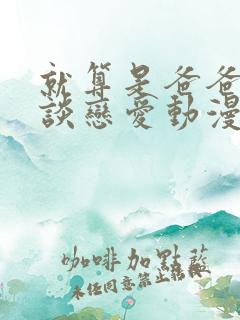 就算是爸爸
談戀愛動漫
咖啡加點藍
未任同意禁止轉載